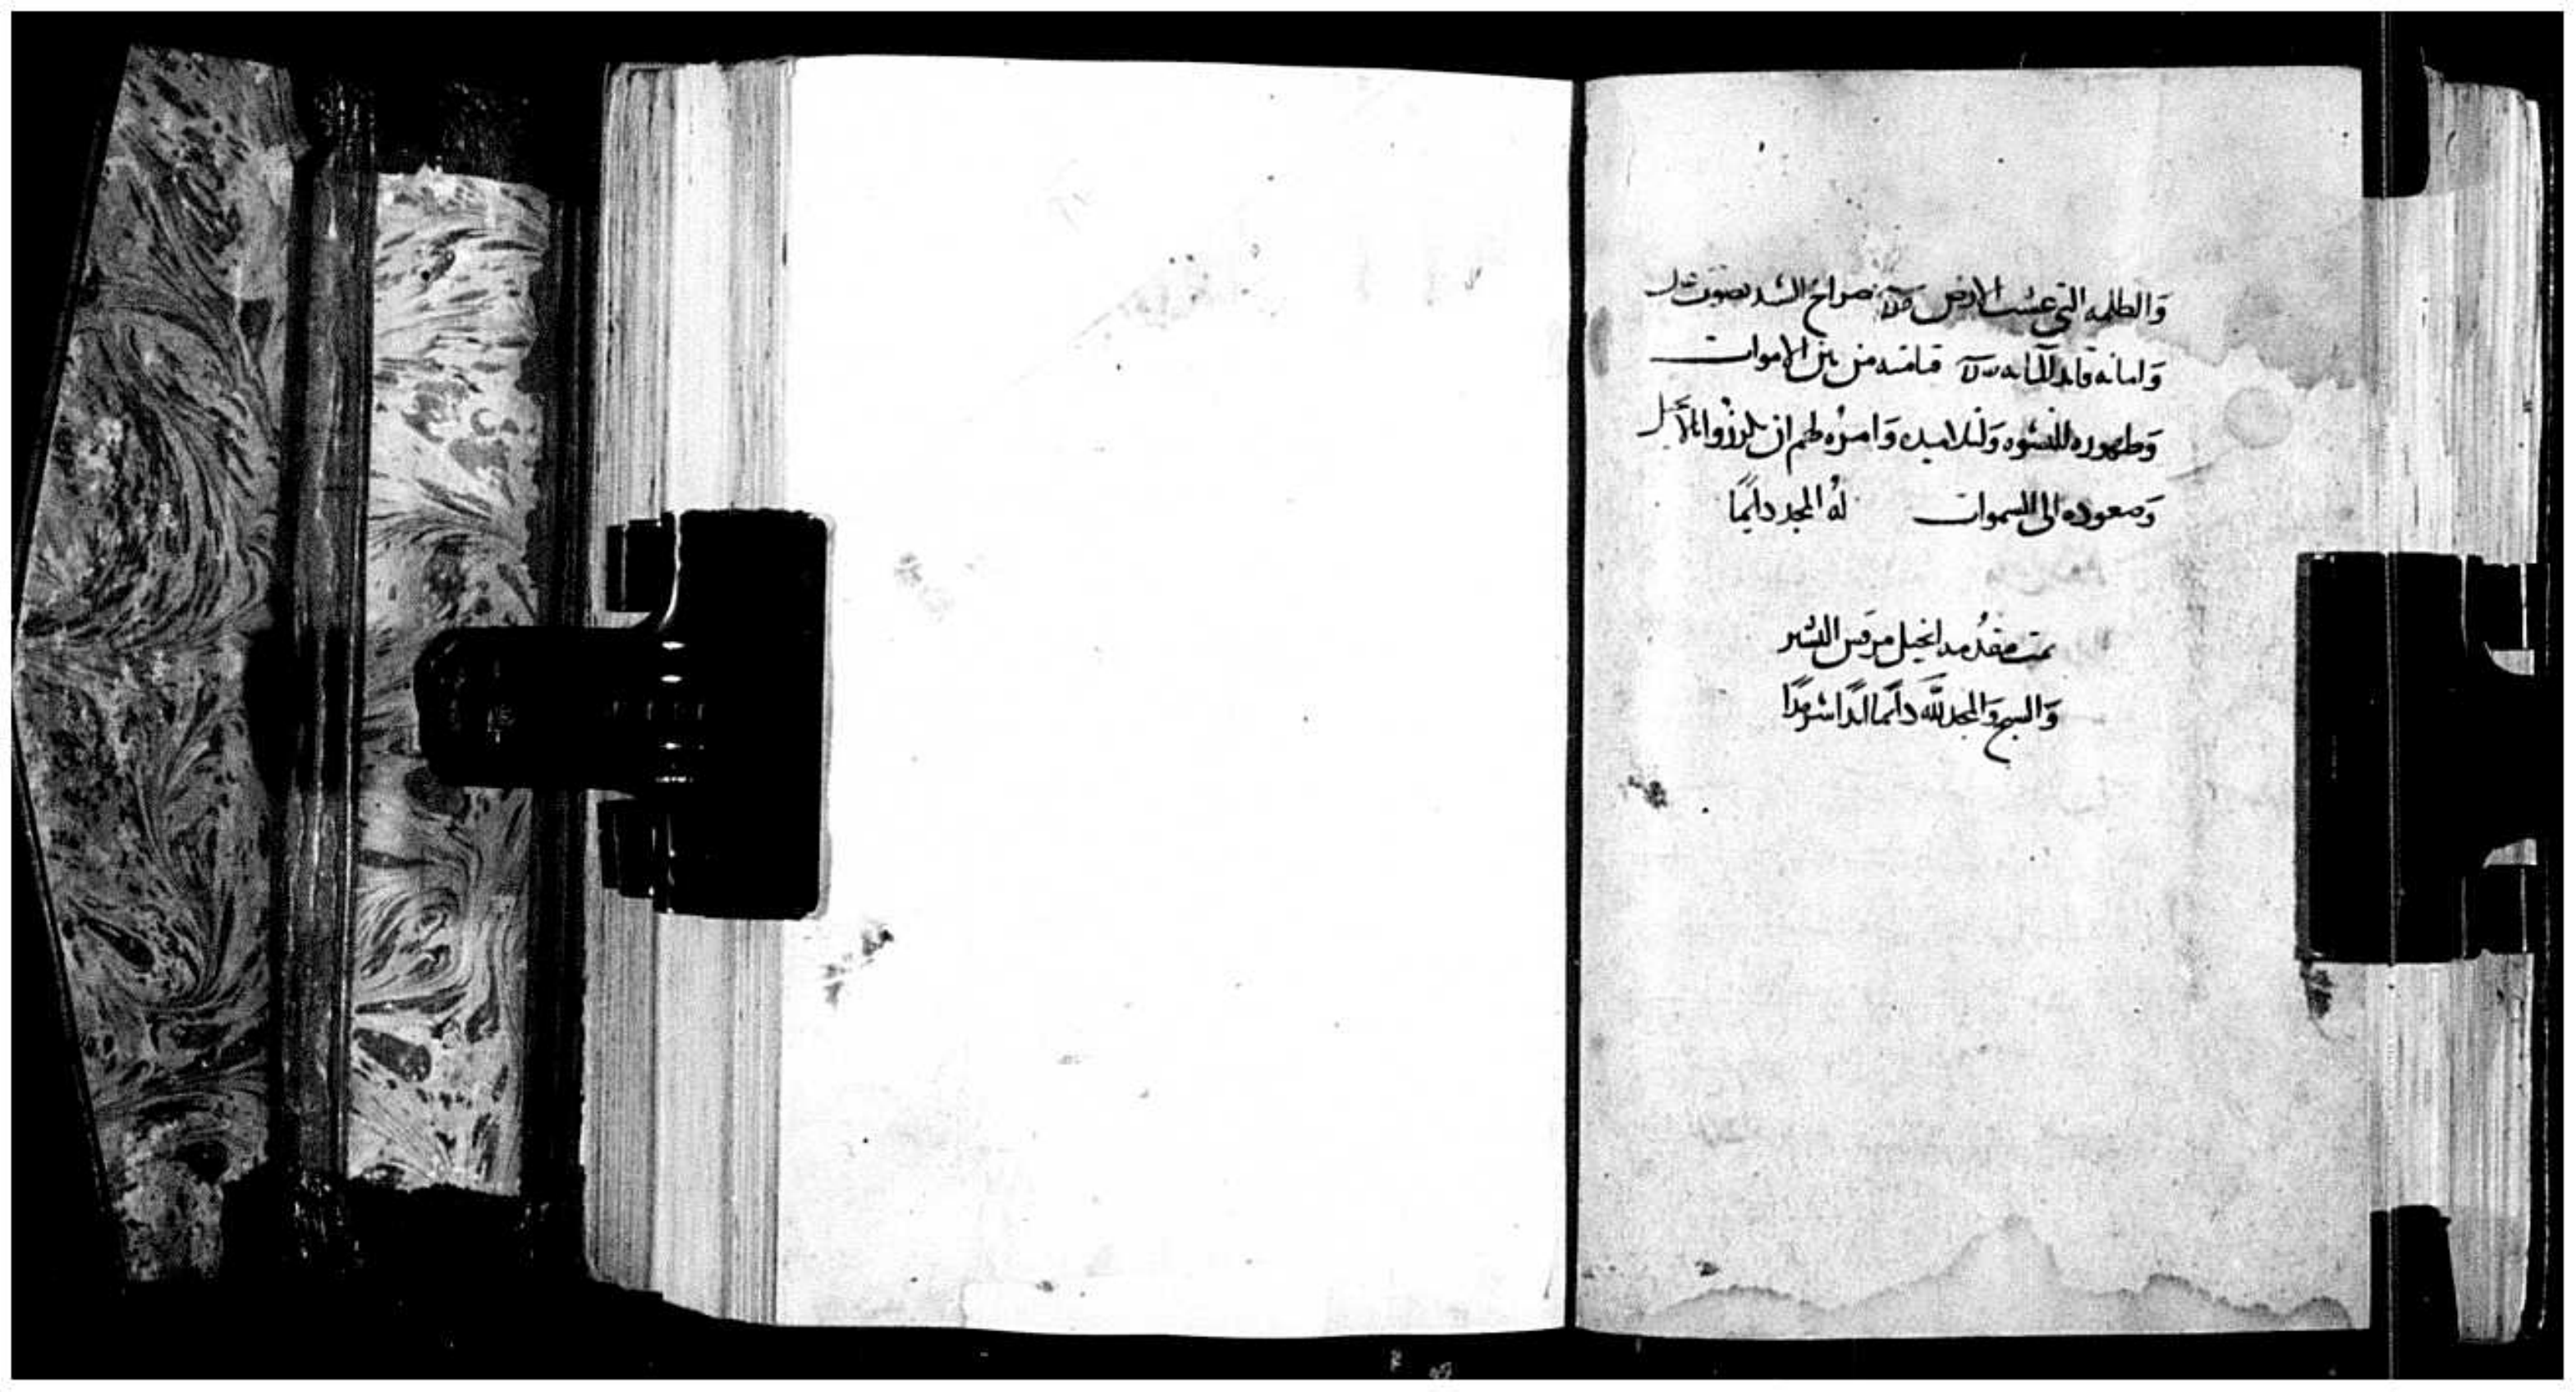 وَالظلمه التى غشت الارض صراخ السيد بصوت
وَامانه قايد المايه قيامته من بين الاموات
وَظهوره للنسوه وَلتلاميده وَامرُه لهم ان يكرزُوا بالانجيل
وَصعوده الى السموات لهُ المجد دايمًا
تمت مقدُمه انجيل مرقس البشير
وَالسبح وَالمجد للّه دآيما ابدًا سرمدًا